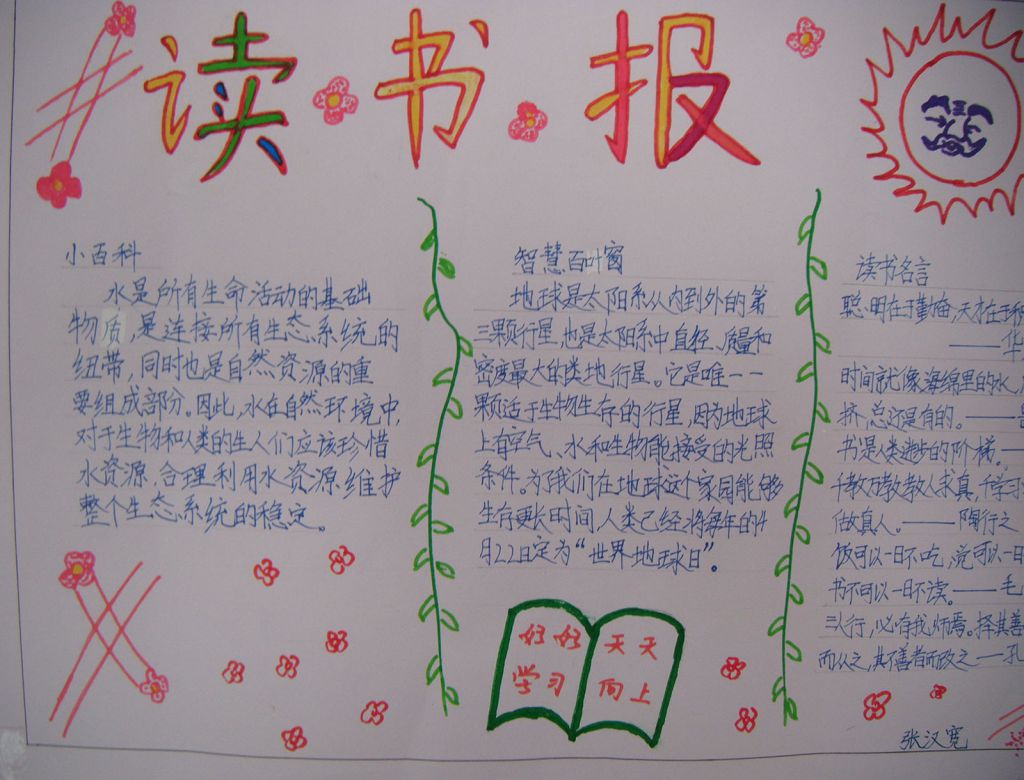 读书报
小百科
水是所有生命活动的基础
物质，是连接所有生态系统的
纽带，同时也是自然资源的重
要组成部分。因此，水在自然环境中，
对于生物和人类的生人们应该珍惜
水资源，合理利用水资源维护
整个生态系统的稳定。
智慧百叶窗
地球是太阳系从内到外的第
三颗行星，也是太阳系中直径、质量和
密度最大的类地行星。它是唯一一
颗适于生物生存的行星，因为地球
上有空气、水和生物能接受的光照
条件。为了我们在地球这个家园能够
生存更长时间，人类已经将每年的4
月22日定为“世界地球日”。
好好
学习
天天
向上
读书名言
聪明在于勤奋，天才在于积
——华
时间就像海绵里的水，
挤，总还是有的。——
书是人类进步的阶梯。—
千教万教教人求真，千学
做真人。——陶行之
饭可以一日不吃，觉可以一日
书不可以一日不读。——毛
三人行，必有我师焉。择其善
而从之，其不善者而改之—孔
张汉宽